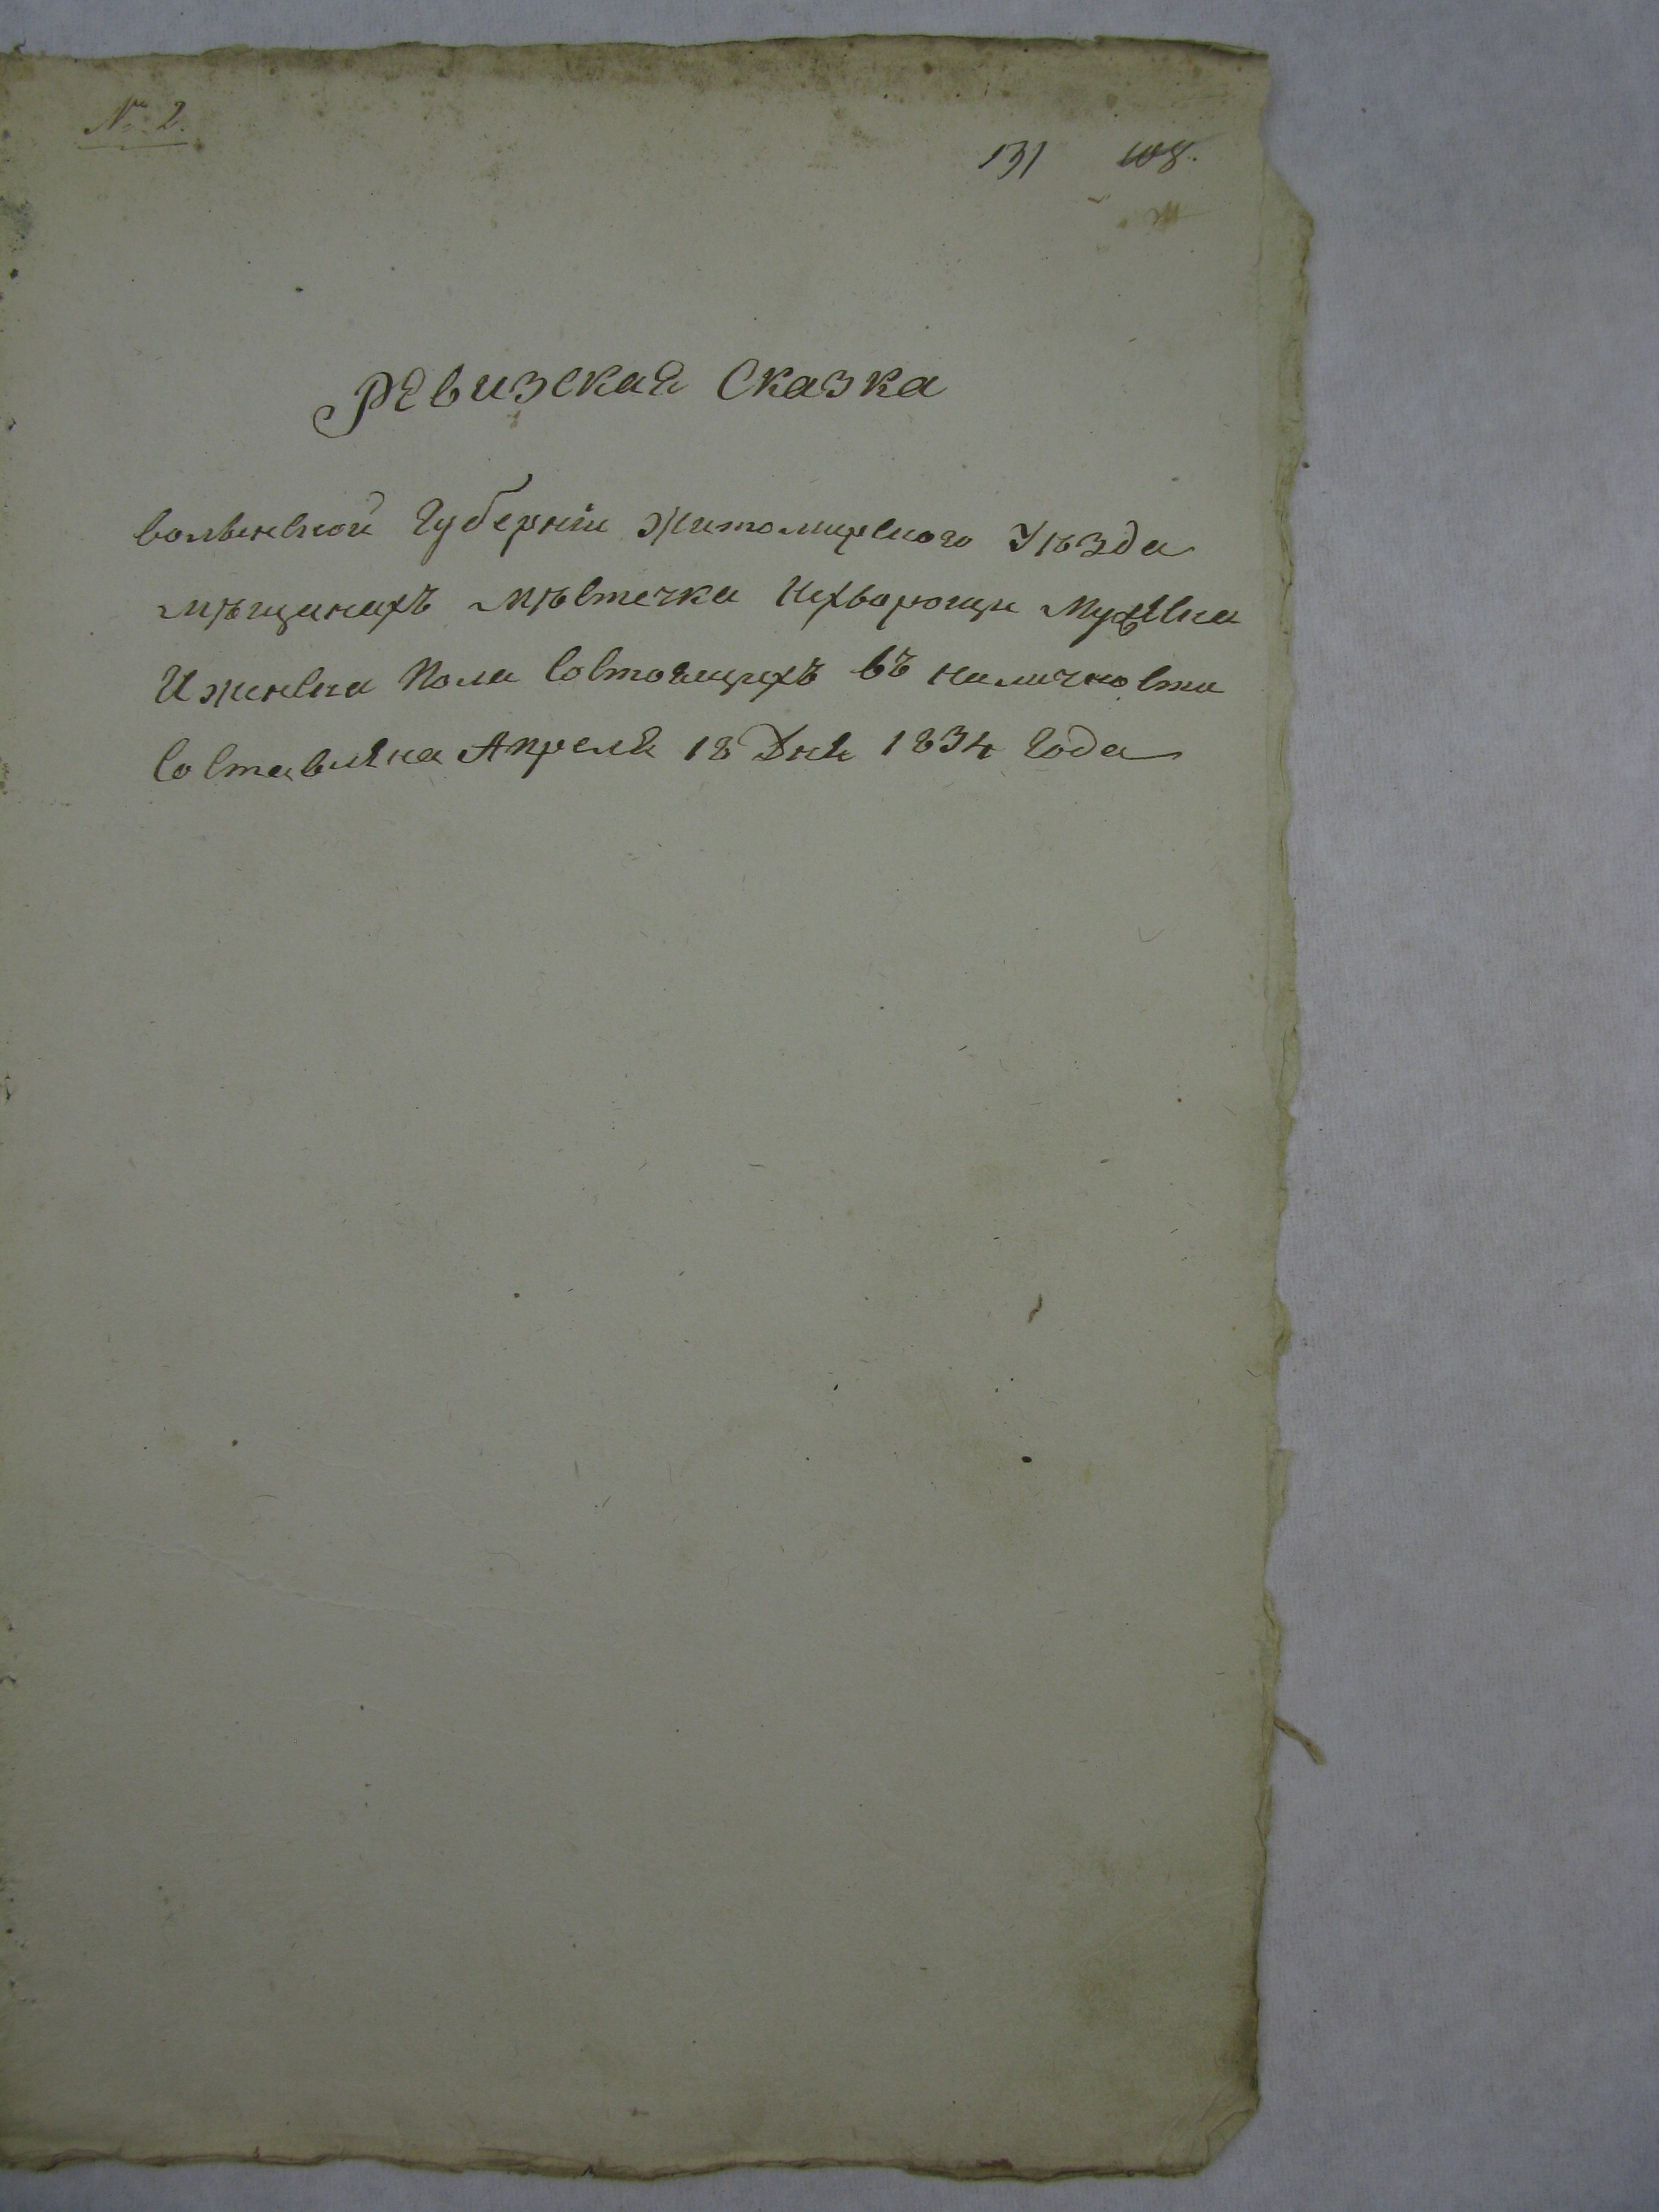 № 2.
131 108.
Ревизская Сказка
волынской Губерніи Житомирского Уѣзда
мѣщанахъ мѣстечка Нехворощи Мужеска
И женска Пола Состоящихъ въ наличности
Составлена Апреля 18 Дня 1834 Года